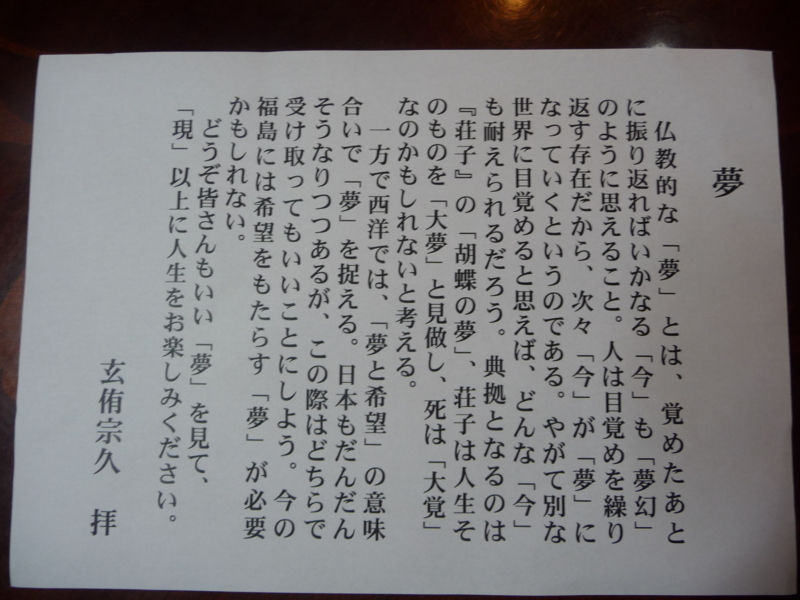 夢
仏教的な「夢」とは、覚めたあと
に振り返ればいかなる「今」も「夢幻」
のように思えること。人は目覚めを繰り
返す存在だから、次々「今」が「夢」に
なっていくというのである。やがて別な
世界に目覚めると思えば、どんな「今」
も耐えられるだろう。典拠となるのは
『荘子』の「胡蝶の夢」、荘子は人生そ
のものを「大夢」と見做し、死は「大覚」
なのかもしれないと考える。
一方で西洋では、「夢と希望」の意味
合いで「夢」を捉える。日本もだんだん
そうなりつつあるが、この際はどちらで
受け取ってもいいことにしよう。今の
福島には希望をもたらす「夢」が必要
かもしれない。
どうぞ皆さんもいい「夢」を見て、
「現」以上に人生をお楽しみください。
玄侑宗久 拝